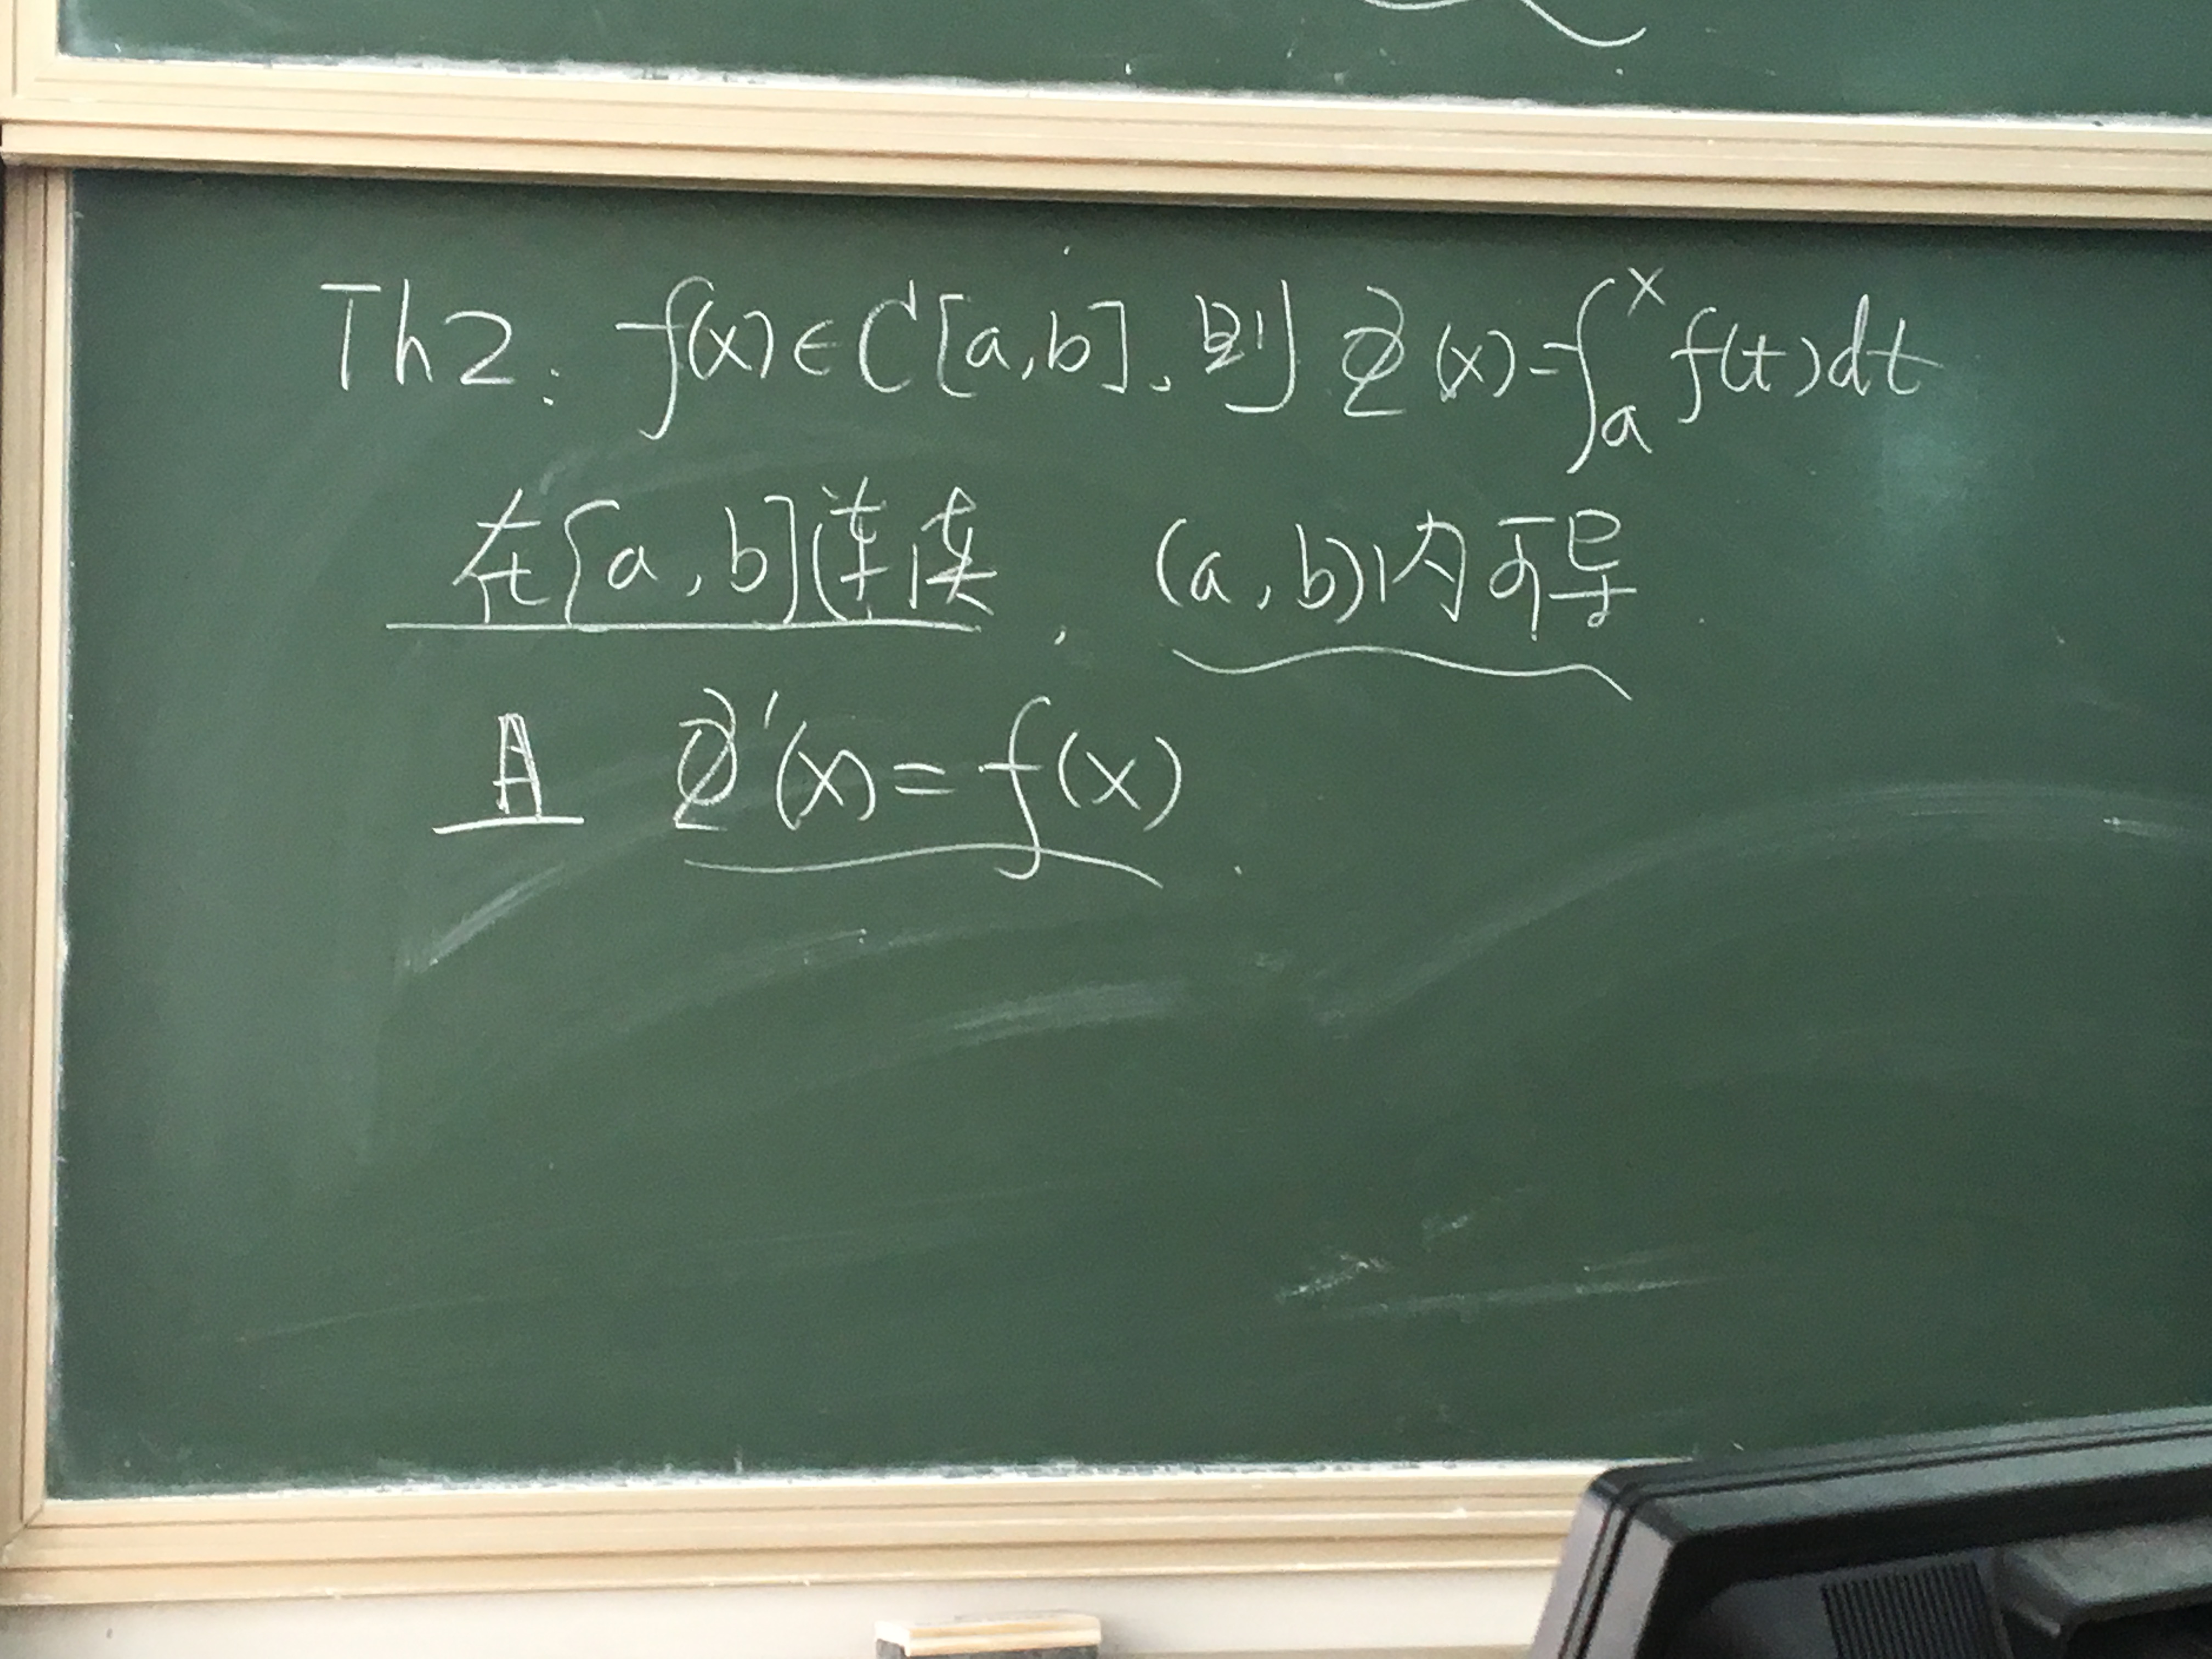 Th2. f(x)∈C[a,b], 则 Φ(x)=∫ₐˣ f(t)dt
在[a,b]连续, (a,b)内可导
且 Φ'(x)=f(x).